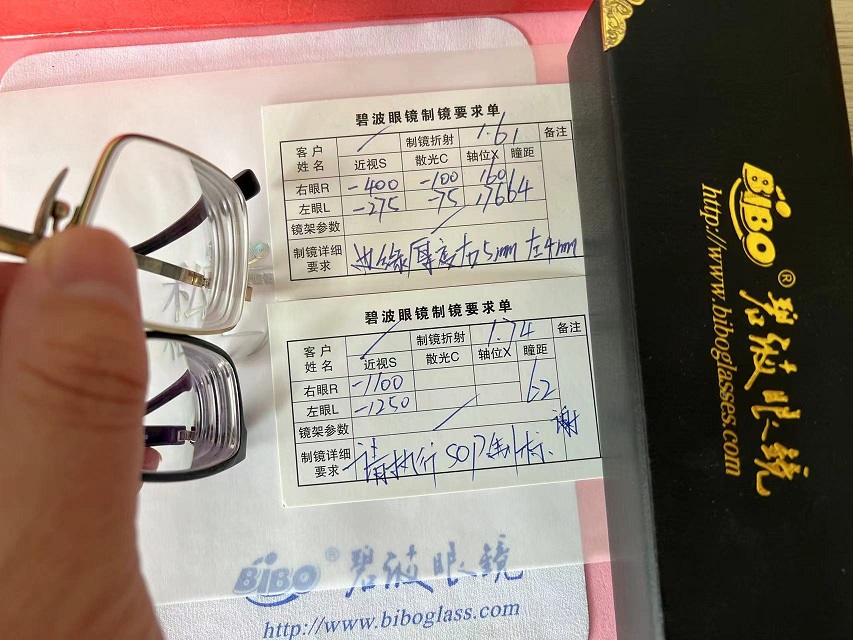 碧波眼镜制镜要求单
客户姓名 制镜折射 1.61 备注
近视S 散光C 轴位X 瞳距
右眼R -400 -100 160
左眼L -275 -75 176 64
镜架参数
制镜详细要求 边缘厚度右5mm 左4mm
碧波眼镜制镜要求单
客户姓名 制镜折射 1.74 备注
近视S 散光C 轴位X 瞳距
右眼R -1100
左眼L -1250 62
镜架参数
制镜详细要求 请执行SOP制标. 谢
BiBO® 碧波眼镜
http://www.biboglass.com
BiBO® 碧波眼镜
http://www.biboglasses.com